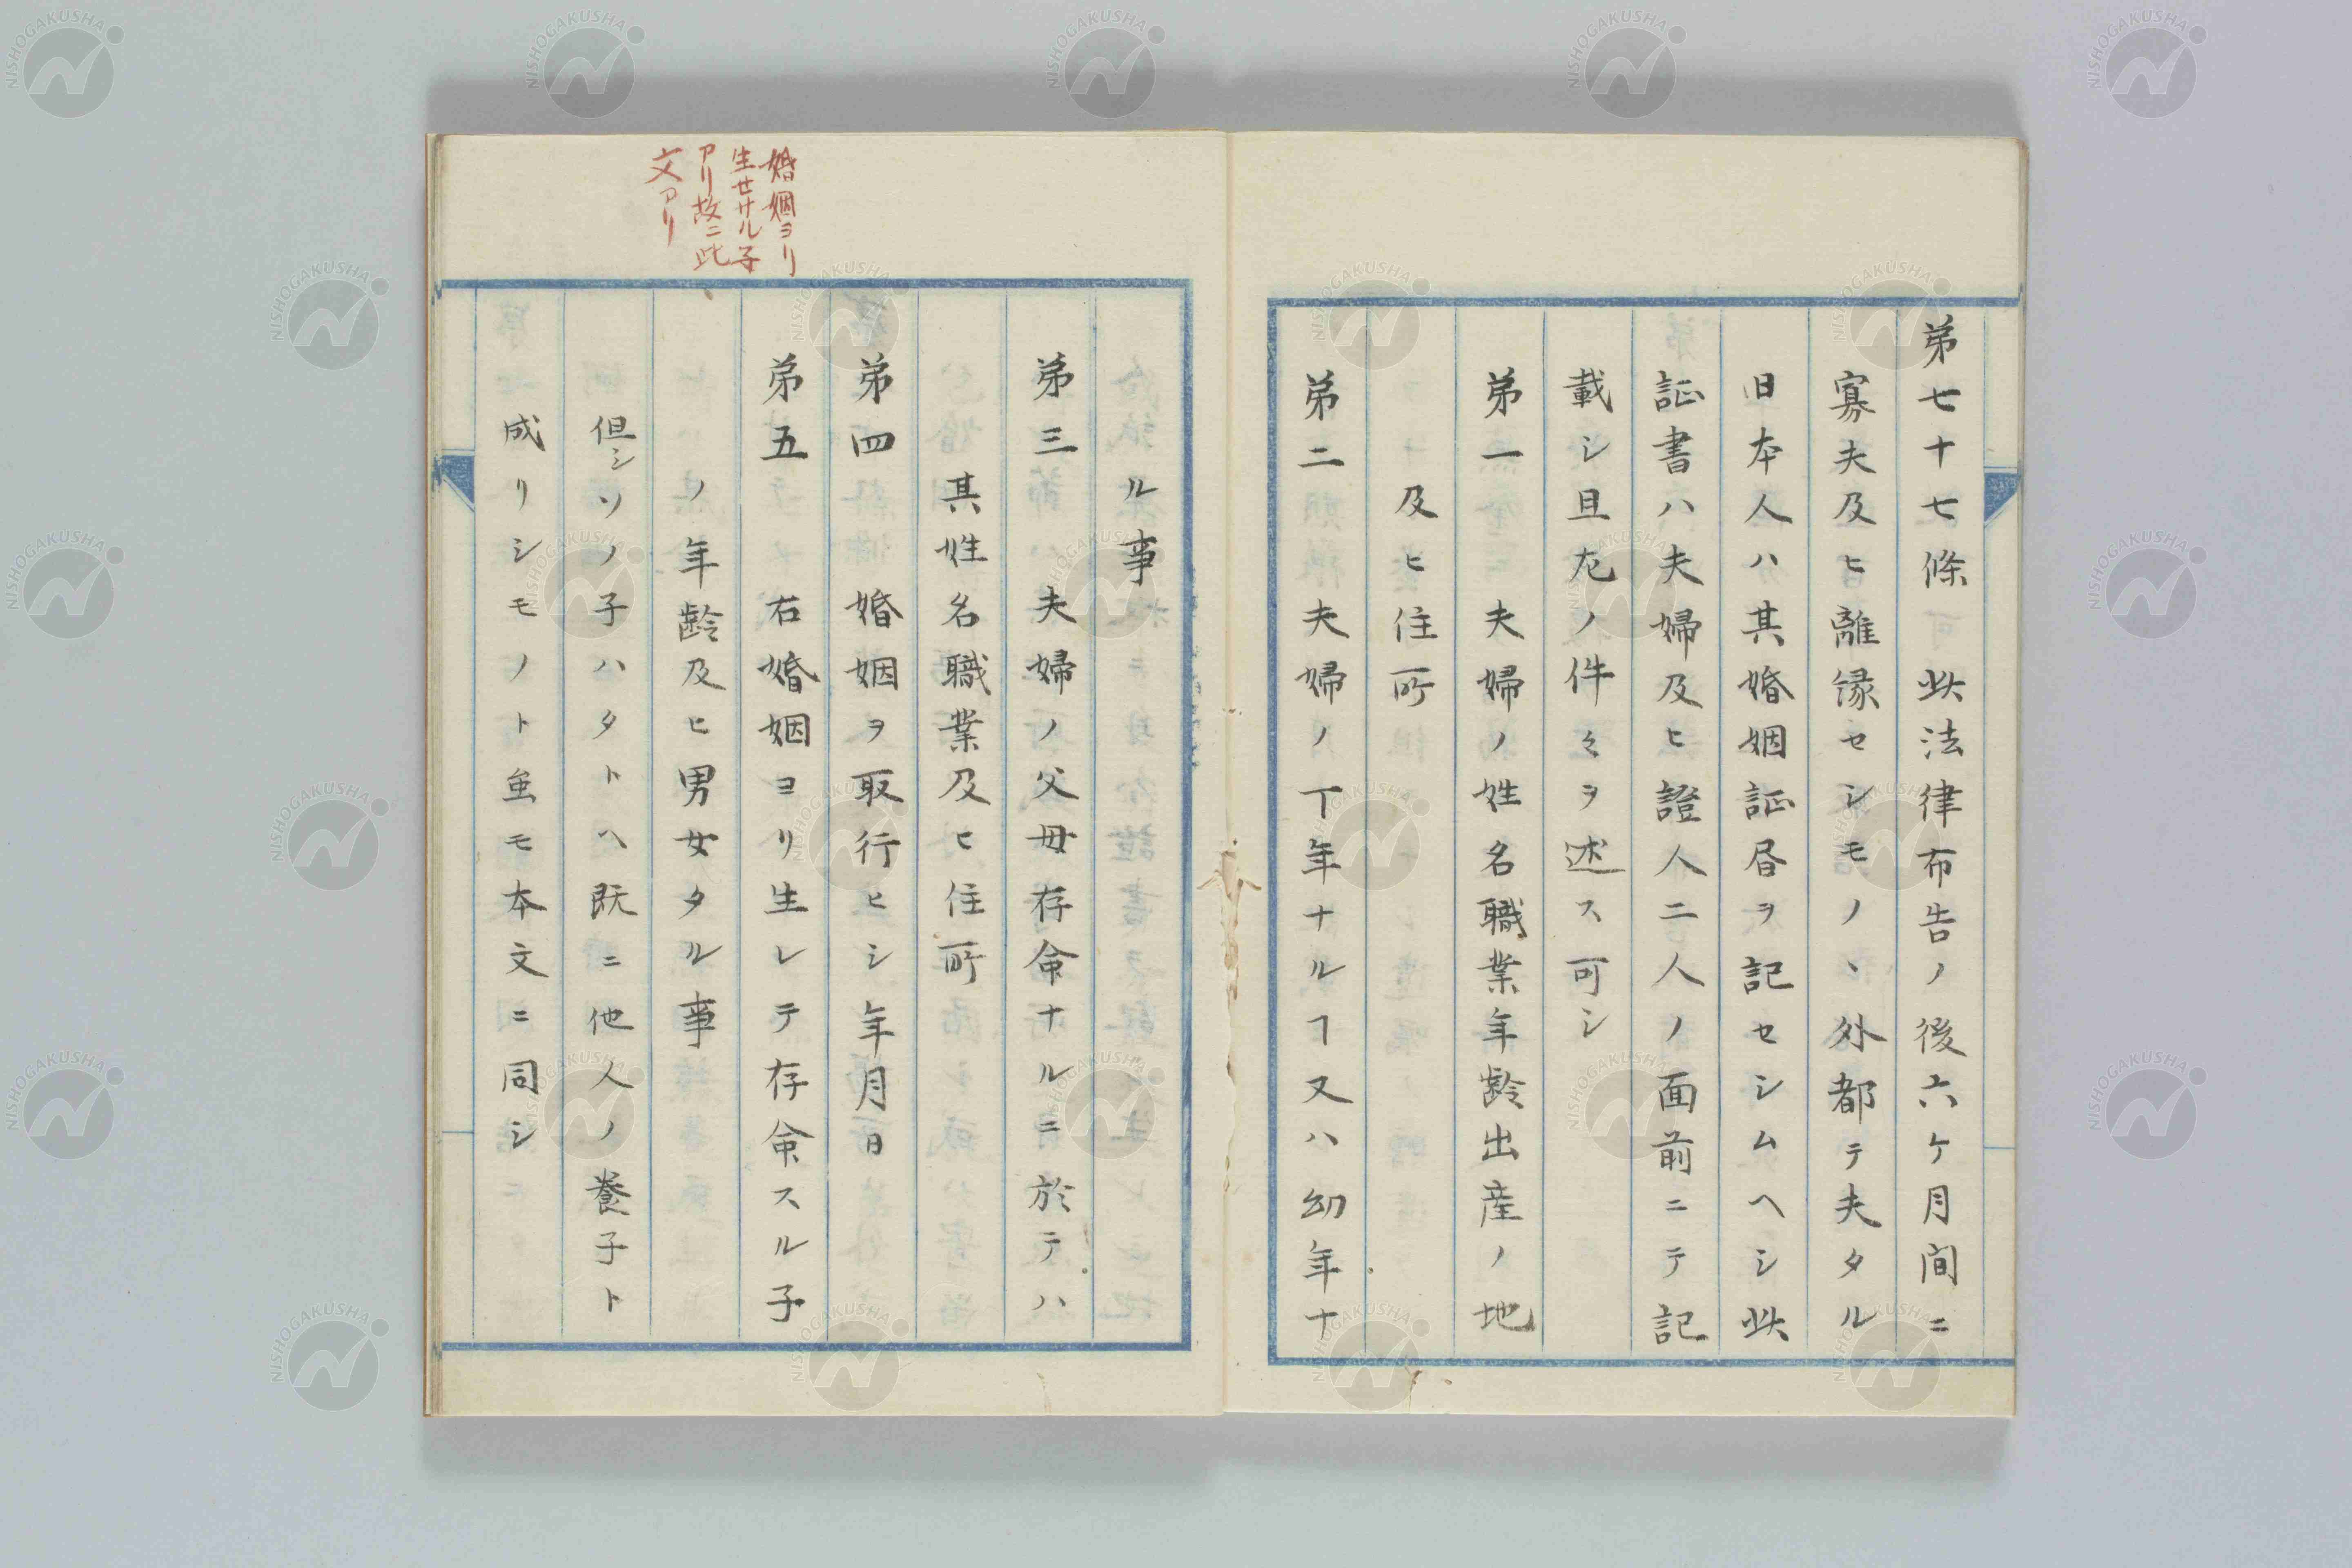 第七十七條　此法律布告ノ後六ケ月間ニ
寡夫及ヒ離縁セシモノヽ外都テ夫タル
日本人ハ其婚姻証書ヲ記セシムヘシ此
証書ハ夫婦及ヒ證人二人ノ面前ニテ記
載シ且左ノ件々ヲ述ス可シ
第一　夫婦ノ姓名職業年齢出産ノ地
及ヒ住所
第二　夫婦ノ丁年ナルヿ又ハ幼年ナ
ル事
第三　夫婦ノ父母存命ナルニ於テハ
其姓名職業及ヒ住所
第四　婚姻ヲ取行ヒシ年月日
第五　右婚姻ヨリ生レテ存命スル子
ノ年齢及ヒ男女タル事
但シソノ子ハタトヘ既ニ他人ノ養子ト
成リシモノト虽モ本文ニ同シ
婚姻ヨリ
生セサル子
アリ故ニ此
文アリ
NISHOGAKUSHA